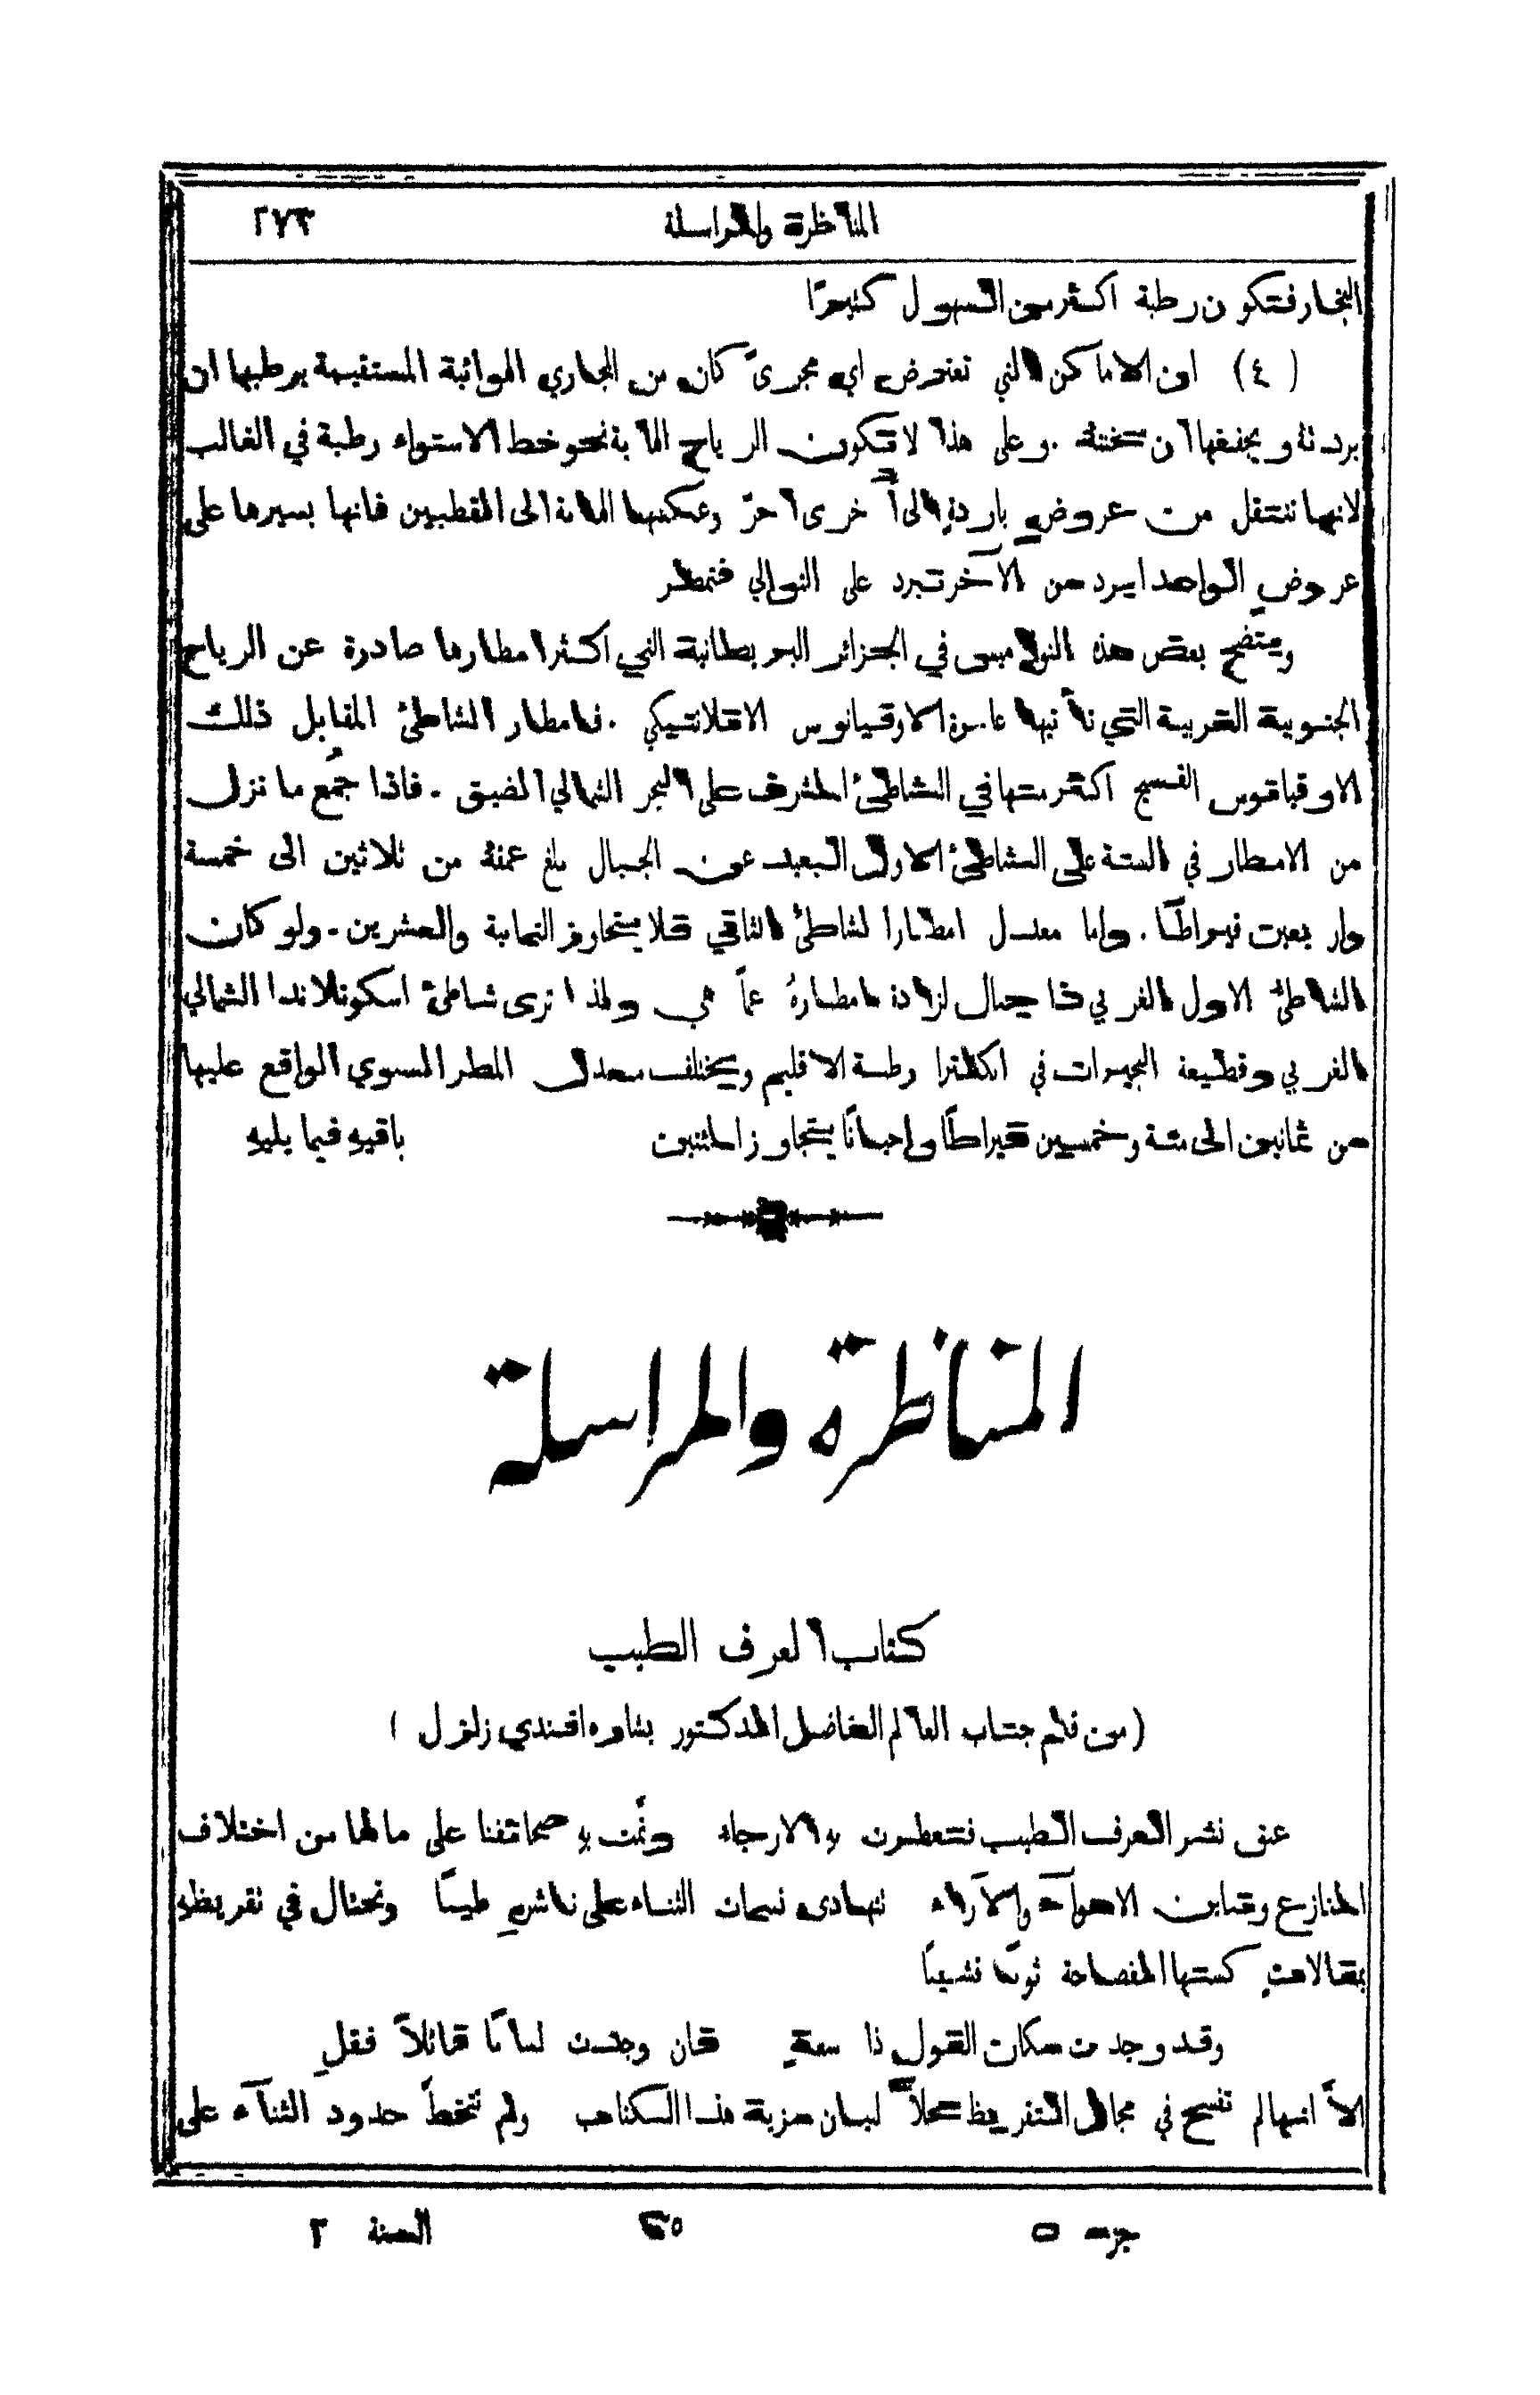 المناظرة والمراسلة ٢٧٣
البخار فتكون رطبة اكثر من السهول كثيرًا
(٤) ان الاماكن التي تعترض اي مجرىً كان من المجاري الهوائية المستقيمة يرطبها ان
بردته ويجففها ان سخنته . وعلى هذا لا تكون الرياح الآبة نحو خط الاستواء رطبة في الغالب
لانها تنتقل من عروض باردة الى أخرى احرّ وعكسها الآبة الى القطبين فانها بسيرها على
عروض الواحد ابرد من الآخر تبرد على التوالي فتمطر
ويتضح بعض هذه النواميس في الجزائر البريطانية التي اكثر امطارها صادرة عن الرياح
الجنوبية الغربية التي تأتيها عابرة الاوقيانوس الاتلانتيكي . فامطار الشاطئ المقابل ذلك
الاوقيانوس الفسيح اكثر منها في الشاطئ المشرف على البحر الشمالي الضيق . فاذا جُمع ما نزل
من الامطار في السنة على الشاطئ الاول البعيد عن الجبال بلغ عمقه من ثلاثين الى خمسة
واربعين قيراطًا . واما معدل امطار الشاطئ الثاني فلا يتجاوز الثمانية والعشرين . ولو كان
الشاطئ الاول الغربي ذا جبال لزادة امطارهُ عمَّا هي ولهذا ترى شاطئ اسكوتلاندا الشمالي
الغربي وقطيعة البحيرات في انكلترا رطبة الاقليم ويختلف معدل المطر السنوي الواقع عليها
من ثمانين الى مئة وخمسين قيراطًا واحيانًا يتجاوز المئتين باقيهِ فيما يليهِ
المناظرة والمراسلة
كتاب العرف الطيب
(من قلم جناب العالم الفاضل الدكتور بشاره افندي زلزل)
عبق نشر العرف الطيب فتعطرت بهِ الارجاء ونمَّت بهِ صحائفنا على ما لها من اختلاف
المنازع وتباين الاهوآء والآراء تتهادى نسمات الثناء على ناشرهِ طيبًا وتختال في تقريظهِ
بمقالات كستها الفصاحة ثوبًا قشيبًا
وقد وجدت مكان القول ذا سعةٍ فان وجدت لسانًا قائلاً فقلِ
الاَّ انها لم تفسح في مجال التقريظ محلاًّ لبيان مزية هذا الكتاب ولم تتخطَّ حدود الثنآء على
جزء ٥ ٣٥ السنة ٢